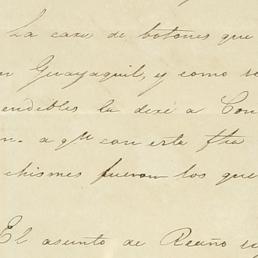 La caxa de botones que
Guayaquil, y como
endibles la dexé a Con
n. a qn con esta fha
chismes fueron los que
El asunto de